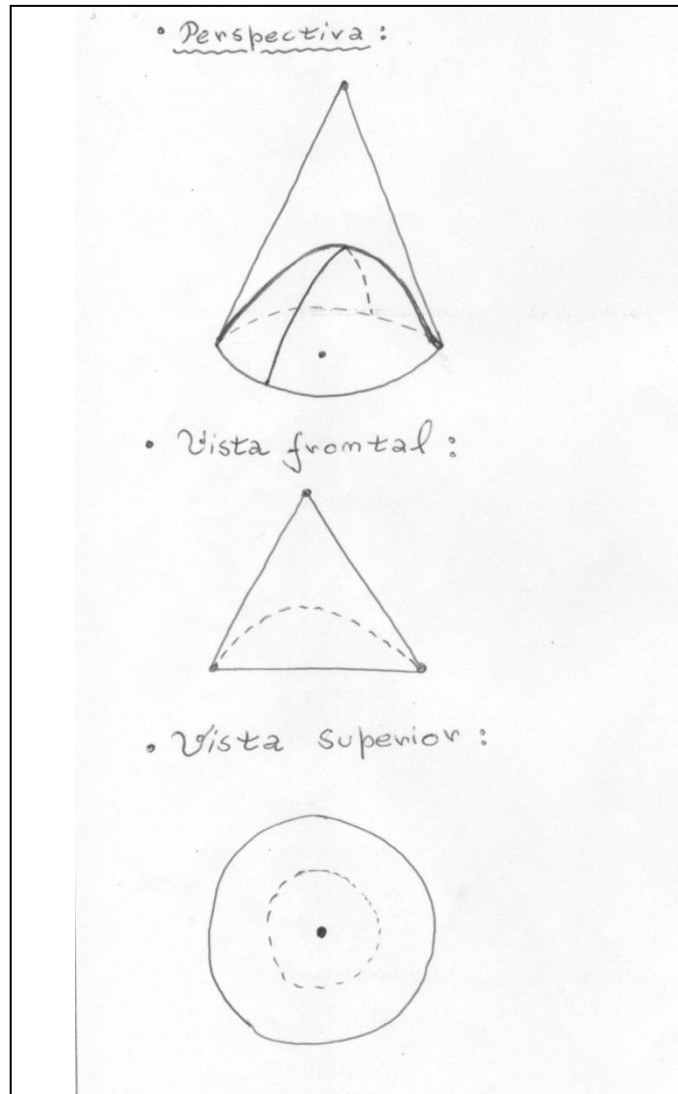 • Perspectiva :
• Vista fromtal :
• Vista Superior :